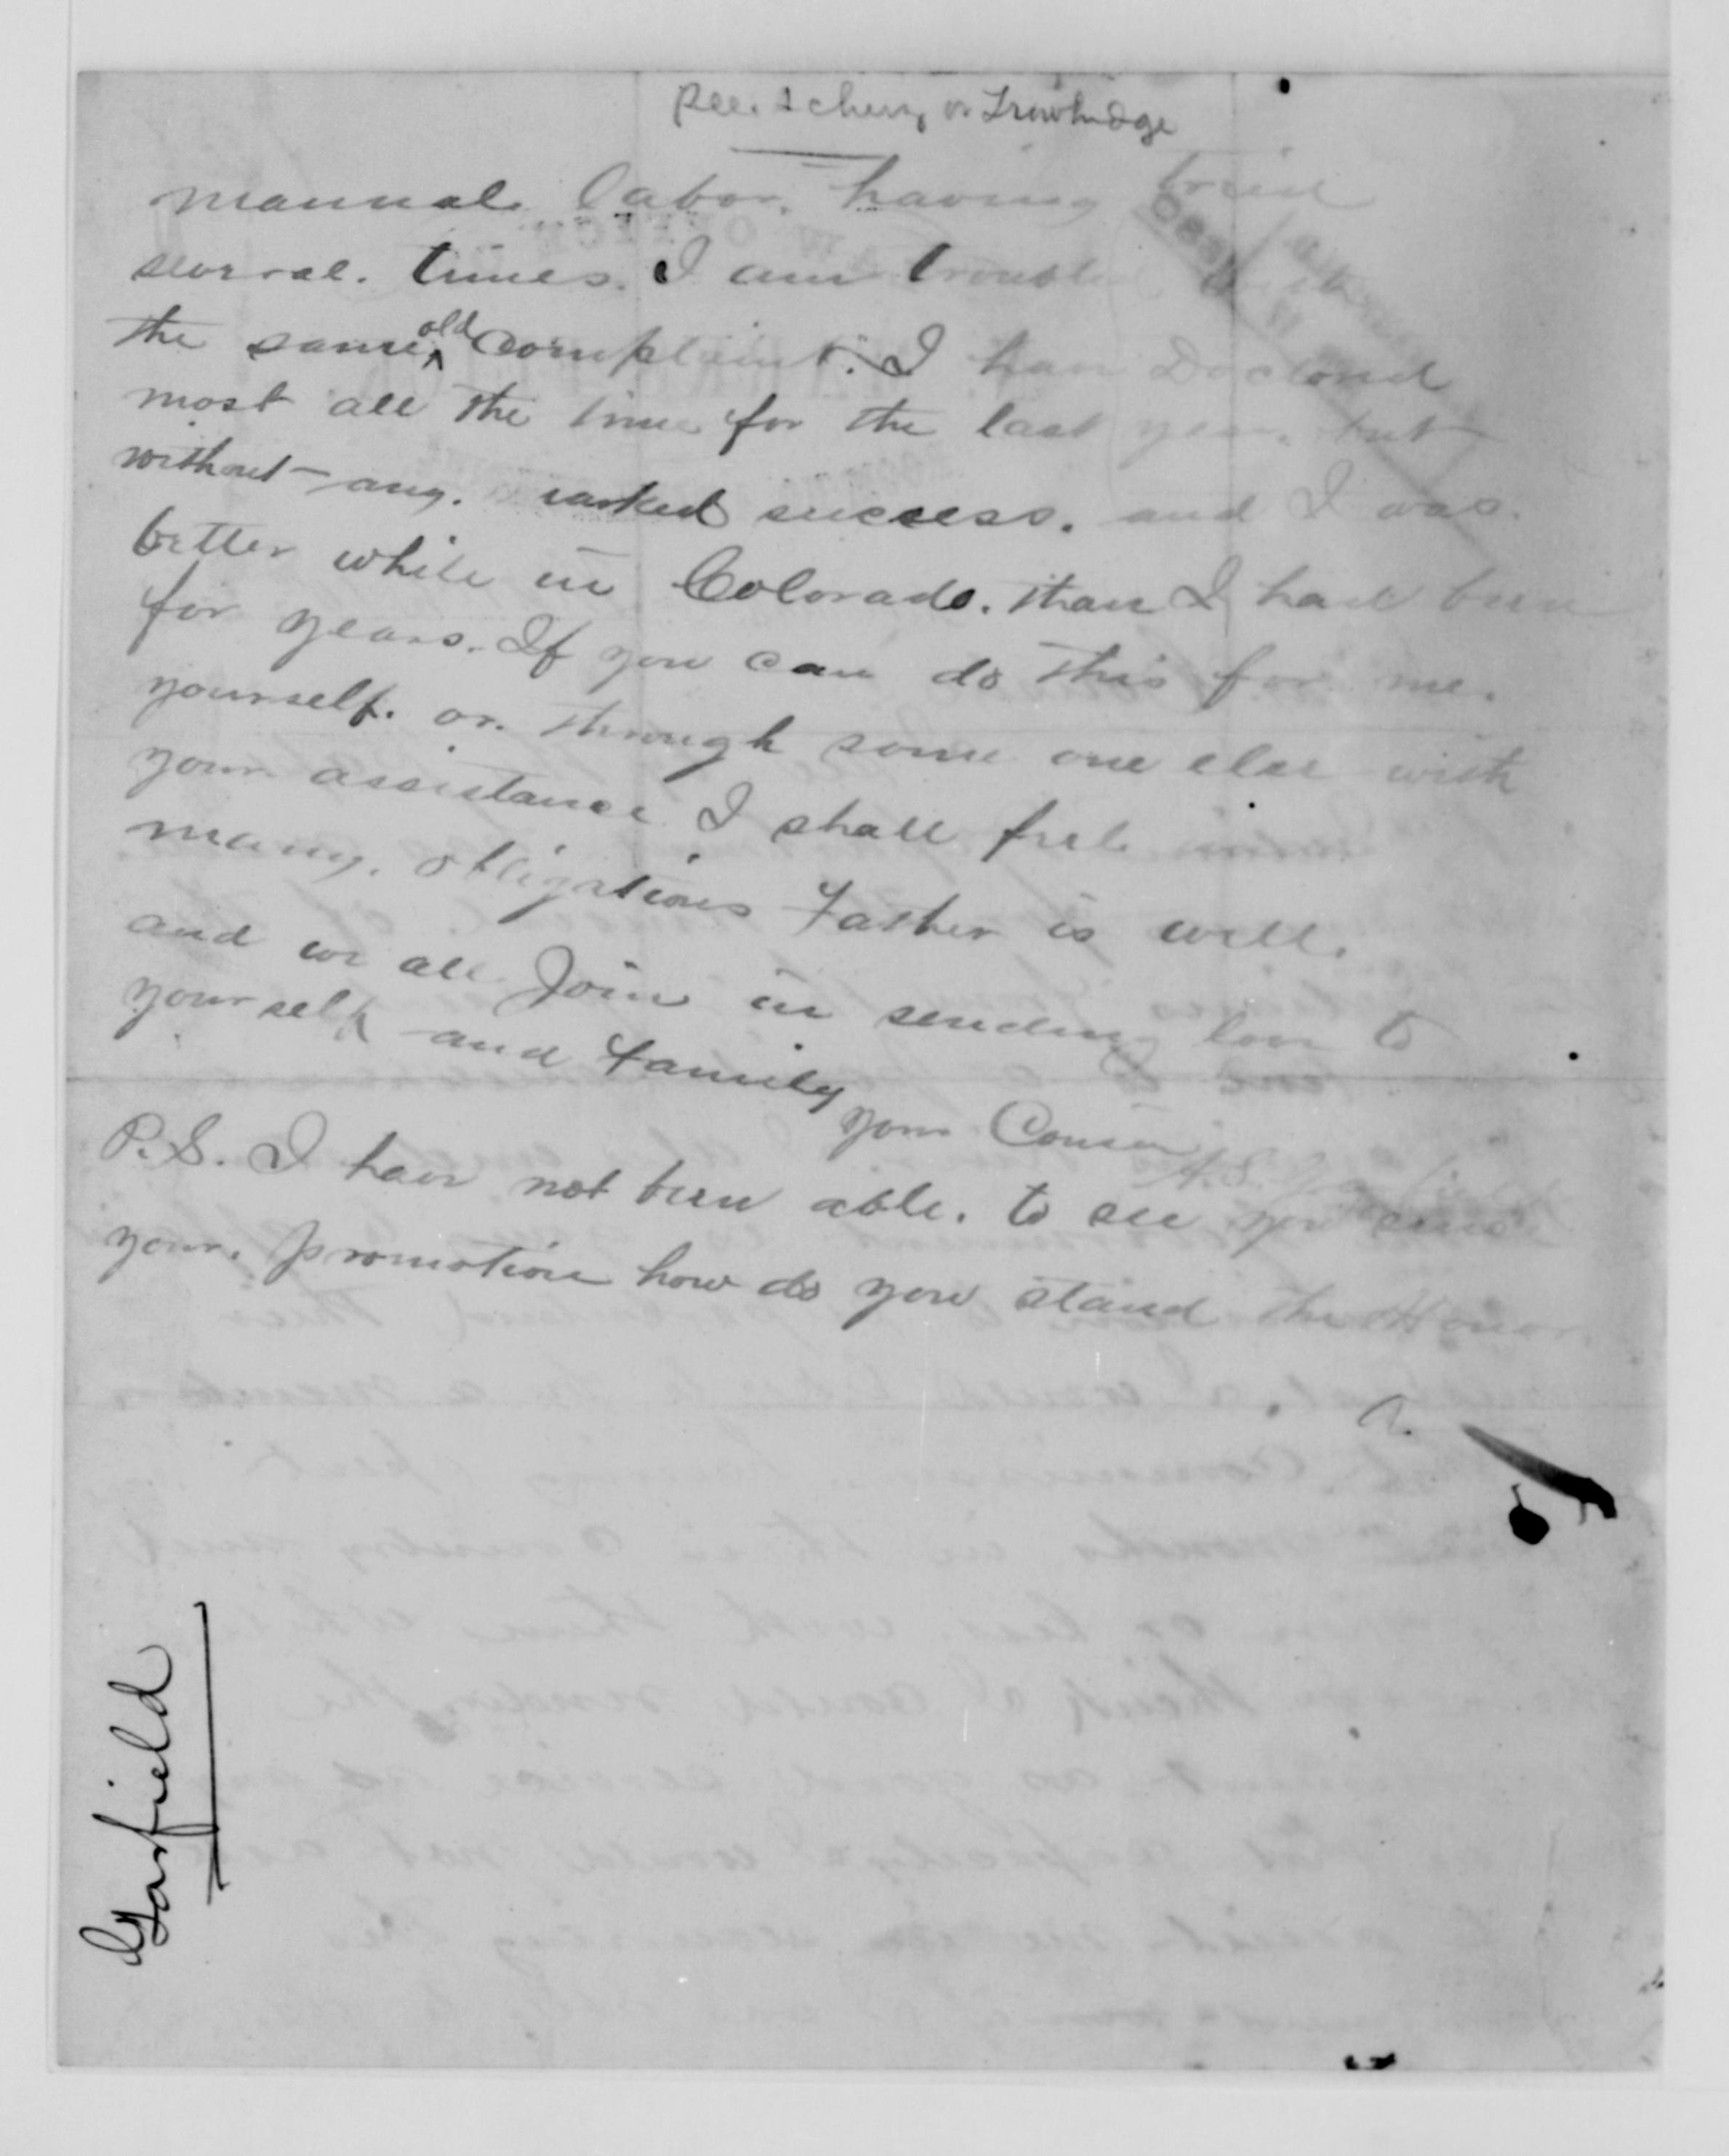 see Schurz or Trowbridge
manual labor. having tried
several. times. I am troubled with
the same old complaint. I have Doctored
most all the time for the last year. but
without any. marked success. and I was.
better while in Colorado. than I had been
for years. If you can do this for me.
yourself. or. through some one else with
your assistance I shall feel under
many. obligations Father is well.
and we all Join in sending love to
yourself and Family
your Cousin
P.S. I have not been able. to see you since
your. promotion how do you stand the Honor
A.
Garfield